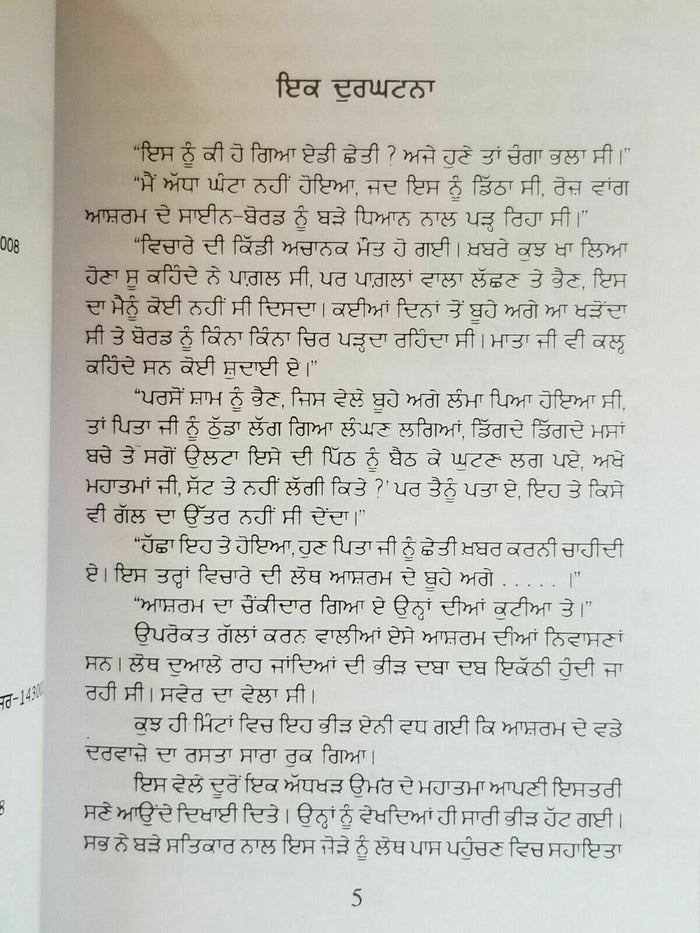 ਇਕ ਦੁਰਘਟਨਾ
“ਇਸ ਨੂੰ ਕੀ ਹੋ ਗਿਆ ਏਡੀ ਛੇਤੀ ? ਅਜੇ ਹੁਣੇ ਤਾਂ ਚੰਗਾ ਭਲਾ ਸੀ।”
“ਮੈਂ ਅੱਧਾ ਘੰਟਾ ਨਹੀਂ ਹੋਇਆ, ਜਦ ਇਸ ਨੂੰ ਡਿੱਠਾ ਸੀ, ਰੋਜ਼ ਵਾਂਗ
ਆਸ਼ਰਮ ਦੇ ਸਾਈਨ-ਬੋਰਡ ਨੂੰ ਬੜੇ ਧਿਆਨ ਨਾਲ ਪੜ੍ਹ ਰਿਹਾ ਸੀ।”
008
“ਵਿਚਾਰੇ ਦੀ ਕਿੱਡੀ ਅਚਾਨਕ ਮੌਤ ਹੋ ਗਈ। ਖ਼ਬਰੇ ਕੁਝ ਖਾ ਲਿਆ
ਹੋਣਾ ਸੂ ਕਹਿੰਦੇ ਨੇ ਪਾਗ਼ਲ ਸੀ, ਪਰ ਪਾਗ਼ਲਾਂ ਵਾਲਾ ਲੱਛਣ ਤੇ ਭੈਣ, ਇਸ
ਦਾ ਮੈਨੂੰ ਕੋਈ ਨਹੀਂ ਸੀ ਦਿਸਦਾ। ਕਈਆਂ ਦਿਨਾਂ ਤੋਂ ਬੂਹੇ ਅਗੇ ਆ ਖੜੋਂਦਾ
ਸੀ ਤੇ ਬੋਰਡ ਨੂੰ ਕਿੰਨਾ ਕਿੰਨਾ ਚਿਰ ਪੜ੍ਹਦਾ ਰਹਿੰਦਾ ਸੀ। ਮਾਤਾ ਜੀ ਵੀ ਕਲ੍ਹ
ਕਹਿੰਦੇ ਸਨ ਕੋਈ ਸ਼ੁਦਾਈ ਏ।”
“ਪਰਸੋਂ ਸ਼ਾਮ ਨੂੰ ਭੈਣ, ਜਿਸ ਵੇਲੇ ਬੂਹੇ ਅਗੇ ਲੰਮਾ ਪਿਆ ਹੋਇਆ ਸੀ,
ਤਾਂ ਪਿਤਾ ਜੀ ਨੂੰ ਠੁੱਡਾ ਲੱਗ ਗਿਆ ਲੰਘਣ ਲਗਿਆਂ, ਡਿੱਗਦੇ ਡਿੱਗਦੇ ਮਸਾਂ
ਬਚੇ ਤੇ ਸਗੋਂ ਉਲਟਾ ਇਸੇ ਦੀ ਪਿੱਠ ਨੂੰ ਬੈਠ ਕੇ ਘੁਟਣ ਲਗ ਪਏ, ਅਖੇ
ਮਹਾਤਮਾਂ ਜੀ, ਸੱਟ ਤੇ ਨਹੀਂ ਲੱਗੀ ਕਿਤੇ ?’ ਪਰ ਤੈਨੂੰ ਪਤਾ ਏ, ਇਹ ਤੇ ਕਿਸੇ
ਵੀ ਗੱਲ ਦਾ ਉੱਤਰ ਨਹੀਂ ਸੀ ਦੇਂਦਾ।”
“ਹੱਛਾ ਇਹ ਤੇ ਹੋਇਆ, ਹੁਣ ਪਿਤਾ ਜੀ ਨੂੰ ਛੇਤੀ ਖ਼ਬਰ ਕਰਨੀ ਚਾਹੀਦੀ
ਏ। ਇਸ ਤਰ੍ਹਾਂ ਵਿਚਾਰੇ ਦੀ ਲੋਥ ਆਸ਼ਰਮ ਦੇ ਬੂਹੇ ਅਗੇ . . . . . ।”
“ਆਸ਼ਰਮ ਦਾ ਚੌਂਕੀਦਾਰ ਗਿਆ ਏ ਉਨ੍ਹਾਂ ਦੀਆਂ ਕੁਟੀਆ ਤੇ।”
ਉਪਰੋਕਤ ਗੱਲਾਂ ਕਰਨ ਵਾਲੀਆਂ ਏਸੇ ਆਸ਼ਰਮ ਦੀਆਂ ਨਿਵਾਸਣਾਂ
ਸਨ। ਲੋਥ ਦੁਆਲੇ ਰਾਹ ਜਾਂਦਿਆਂ ਦੀ ਭੀੜ ਦਬਾ ਦਬ ਇਕੱਠੀ ਹੁੰਦੀ ਜਾ
ਰਹੀ ਸੀ। ਸਵੇਰ ਦਾ ਵੇਲਾ ਸੀ।
ਕੁਝ ਹੀ ਮਿੰਟਾਂ ਵਿਚ ਇਹ ਭੀੜ ਏਨੀ ਵਧ ਗਈ ਕਿ ਆਸ਼ਰਮ ਦੇ ਵਡੇ
ਦਰਵਾਜ਼ੇ ਦਾ ਰਸਤਾ ਸਾਰਾ ਰੁਕ ਗਿਆ।
ਇਸ ਵੇਲੇ ਦੂਰੋਂ ਇਕ ਅੱਧਖੜ ਉਮਰ ਦੇ ਮਹਾਤਮਾ ਆਪਣੀ ਇਸਤਰੀ
ਸਣੇ ਆਉਂਦੇ ਦਿਖਾਈ ਦਿਤੇ। ਉਨ੍ਹਾਂ ਨੂੰ ਵੇਖਦਿਆਂ ਹੀ ਸਾਰੀ ਭੀੜ ਹੱਟ ਗਈ।
ਸਭ ਨੇ ਬੜੇ ਸਤਿਕਾਰ ਨਾਲ ਇਸ ਜੋੜੇ ਨੂੰ ਲੋਥ ਪਾਸ ਪਹੁੰਚਣ ਵਿਚ ਸਹਾਇਤਾ
5